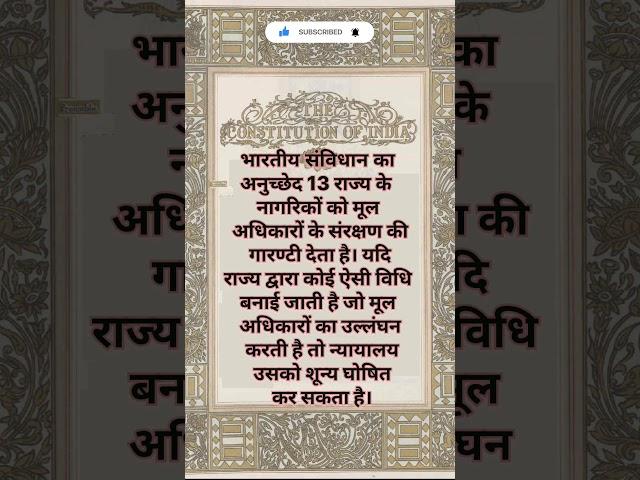 SUBSCRIBED
THE
CONSTITUTION OF INDIA
भारतीय संविधान का
अनुच्छेद 13 राज्य के
नागरिकों को मूल
अधिकारों के संरक्षण की
गारण्टी देता है। यदि
राज्य द्वारा कोई ऐसी विधि
बनाई जाती है जो मूल
अधिकारों का उल्लंघन
करती है तो न्यायालय
उसको शून्य घोषित
कर सकता है।